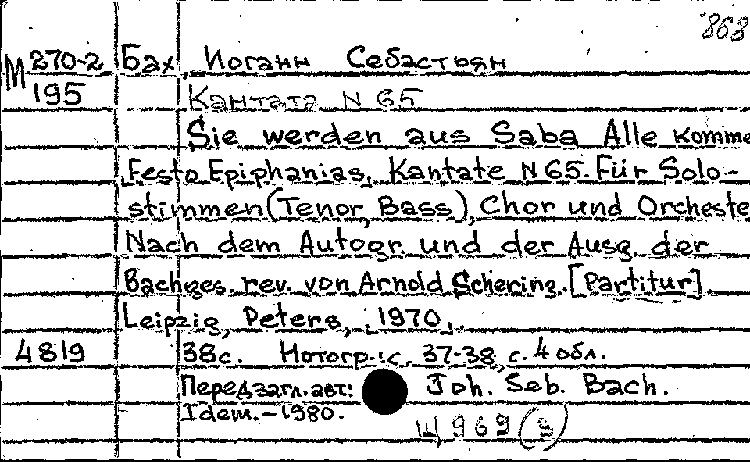 868
М 270-2 Бах, Иоганн Себастьян
195 Кантата N 65
Sie werden aus Saba Alle komme
Festo Epiphanias, Kantate N 65. Für Solo-
stimmen (Tenor, Bass), Chor und Orcheste
Nach dem Autogr. und der Ausg. der
Bachges. rev. von Arnold Schering. [Partitur]
Leipzig, Peters, 1970.
4819 38 с. Нотогр.: с. 37-38, с. 4 обл.
Перед загл. авт.: Joh. Seb. Bach.
Idem. - 1980.
Щ 969 (3)